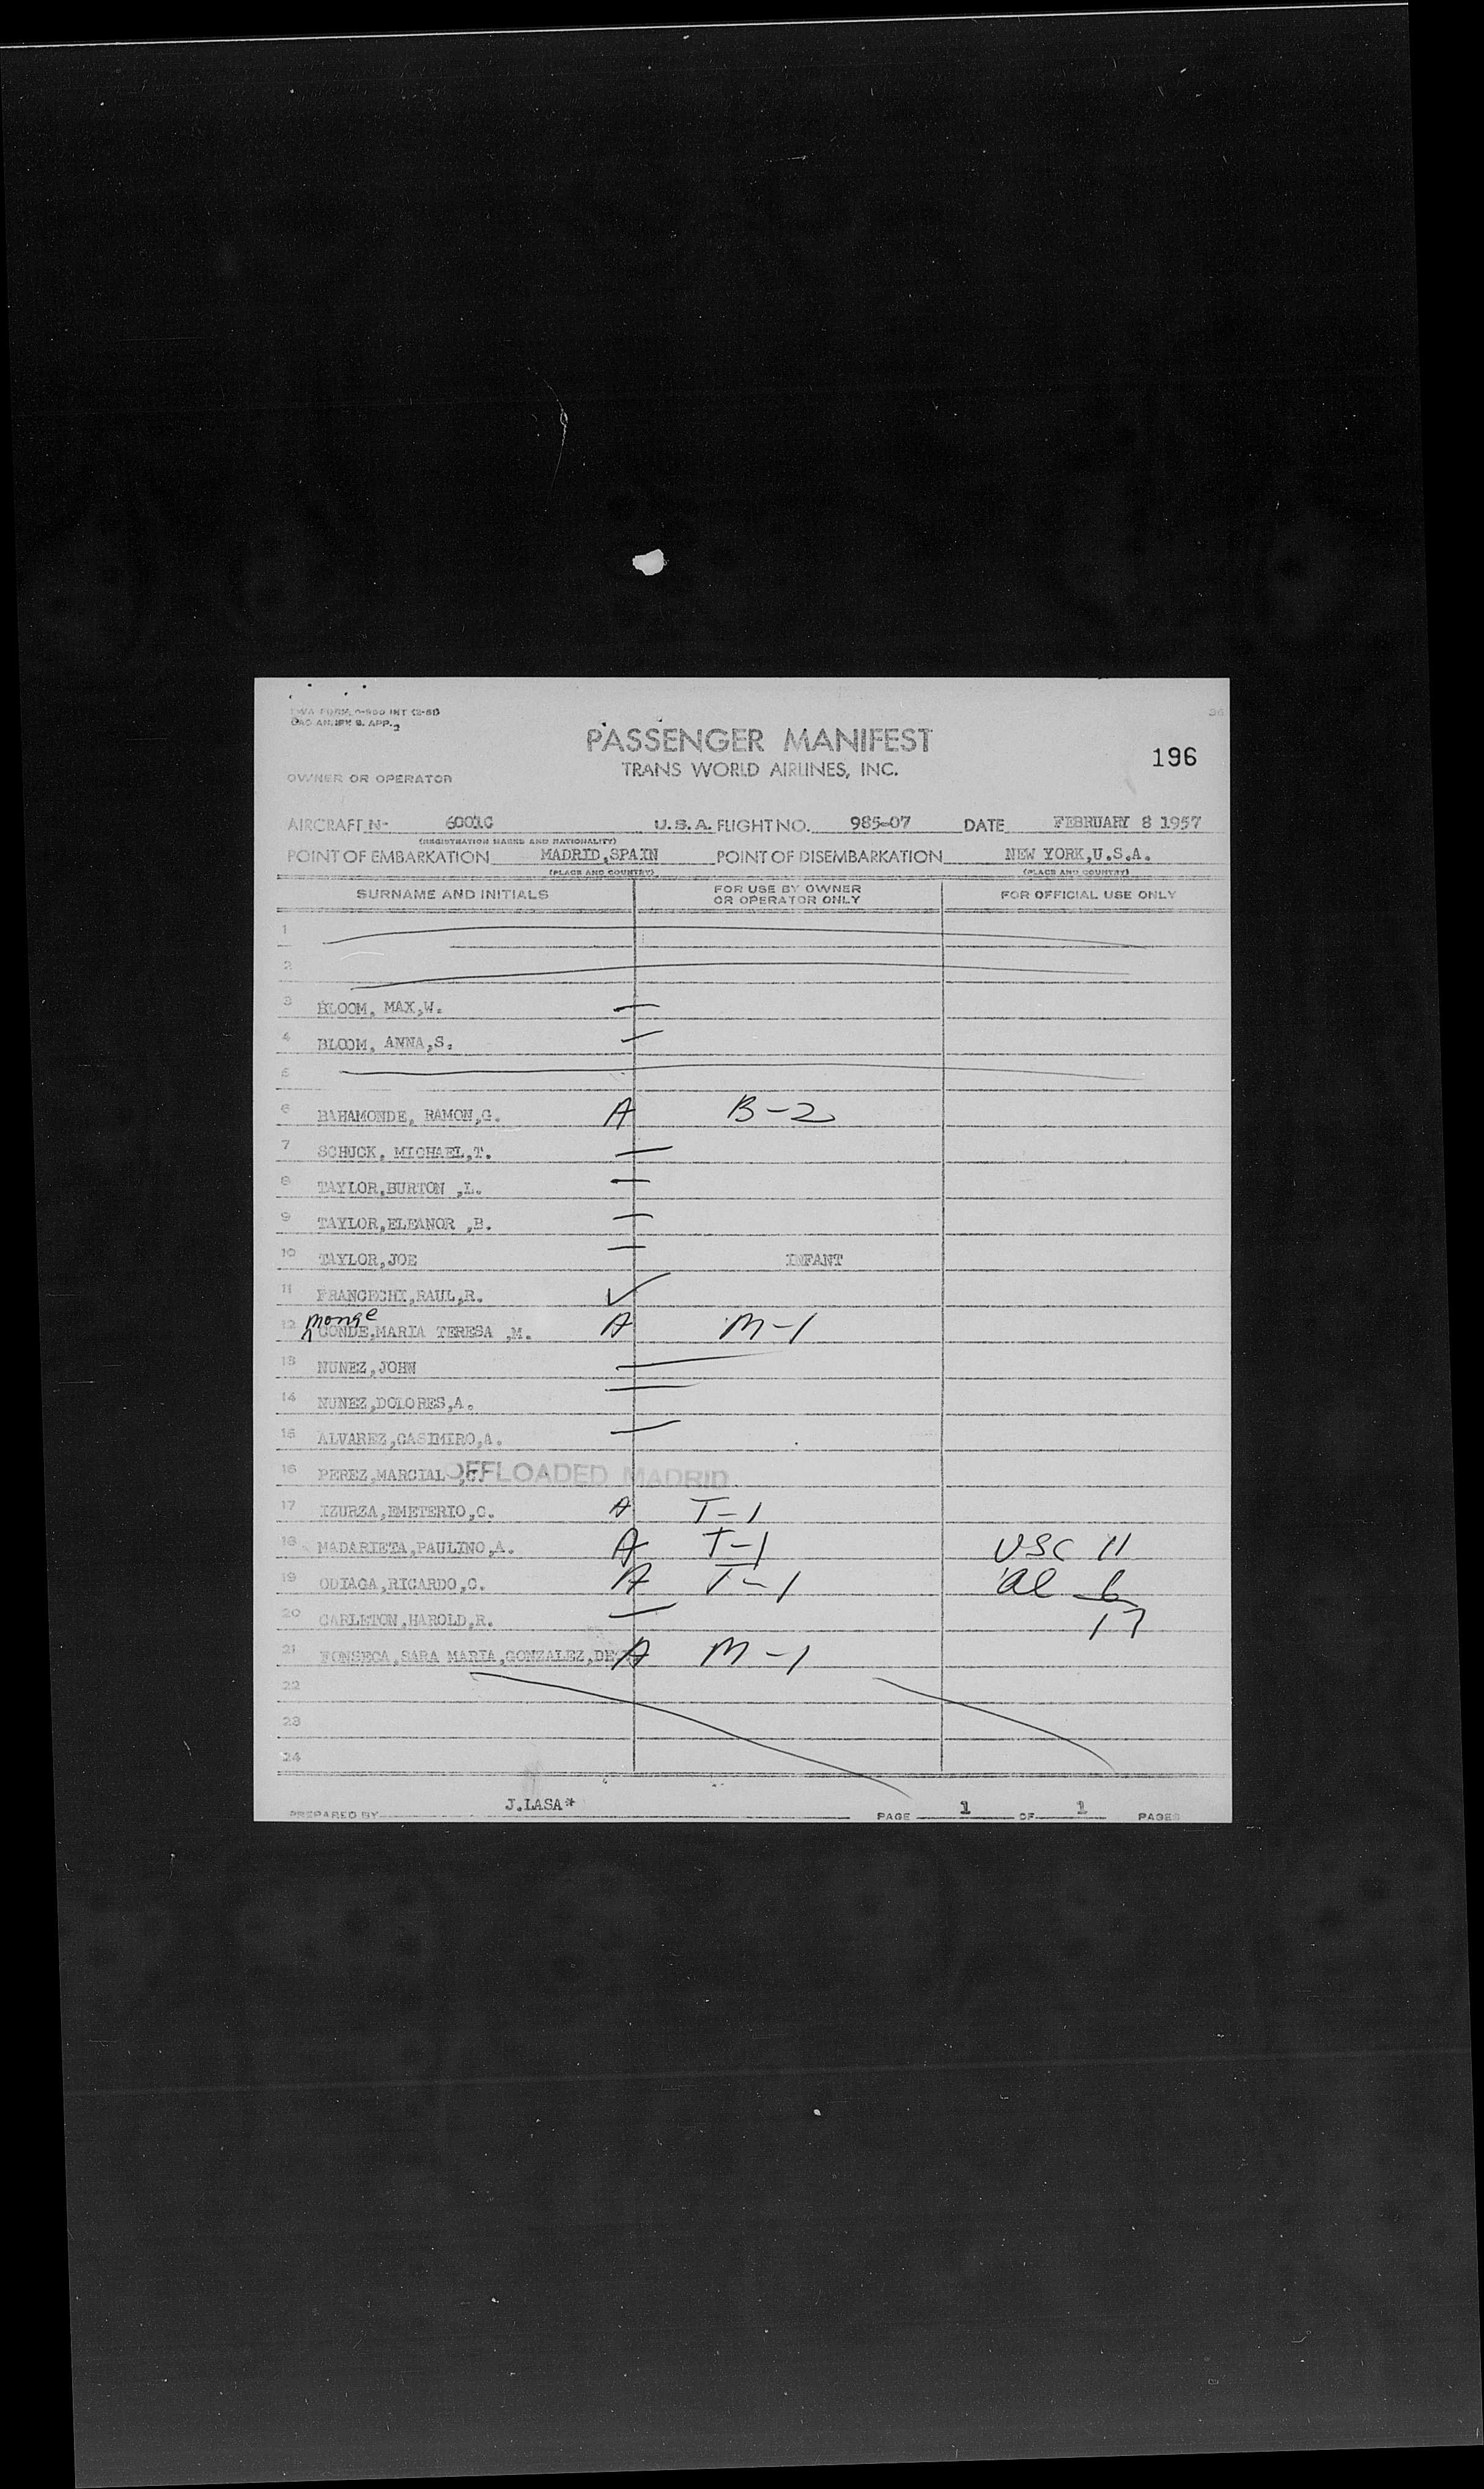 TWA FORM, O-900 INT (2-51)
CAO ANNEX 9. APP. 2
PASSENGER MANIFEST
TRANS WORLD AIRLINES, INC.
196
OWNER OR OPERATOR
AIRCRAFT N- 6001C U.S.A. FLIGHT NO. 985-07 DATE FEBRUARY 8 1957
(REGISTRATION MARKS AND NATIONALITY)
POINT OF EMBARKATION MADRID,SPAIN POINT OF DISEMBARKATION NEW YORK,U.S.A.
(PLACE AND COUNTRY) (PLACE AND COUNTRY)
SURNAME AND INITIALS FOR USE BY OWNER OR OPERATOR ONLY FOR OFFICIAL USE ONLY
1
2
3 BLOOM, MAX,W.
4 BLOOM, ANNA,S.
5
6 BAHAMONDE, RAMON,G. A B-2
7 SCHUCK, MICHAEL,T.
8 TAYLOR,BURTON ,L.
9 TAYLOR,ELEANOR ,B.
10 TAYLOR,JOE INFANT
11 FRANCECHI,RAUL,R.
monge
12 CONDE,MARIA TERESA ,M. A M-1
13 NUNEZ,JOHN
14 NUNEZ,DOLORES,A.
15 ALVAREZ,CASIMIRO,A.
16 PEREZ,MARCIAL OFFLOADED MADRID
17 IZURZA,EMETERIO,C. A T-1
18 MADARIETA,PAULINO,A. A T-1 USC 11
19 ODIAGA,RICARDO,C. A T-1 al 6
20 CARLETON,HAROLD,R. 17
21 FONSECA,SARA MARIA,GONZALEZ,DE A M-1
22
23
24
PREPARED BY J.LASA* PAGE 1 OF 1 PAGES